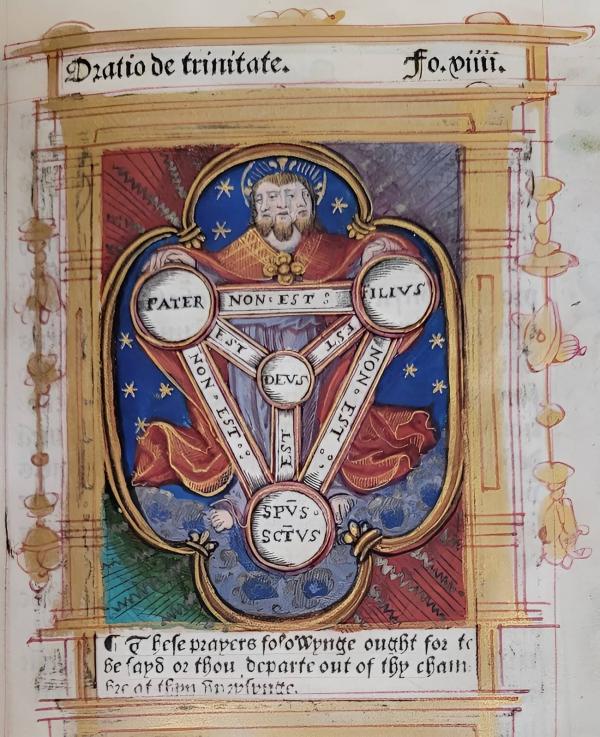 Oratio de trinitate. Fo. viiii.
PATER NON EST FILIUS
EST EST
DEUS
NON EST NON EST
EST
SPŪS
SCT̄US
¶ These prayers folowynge ought for to
be sayd or thou departe out of thy cham
bre at thyn uprysynge.